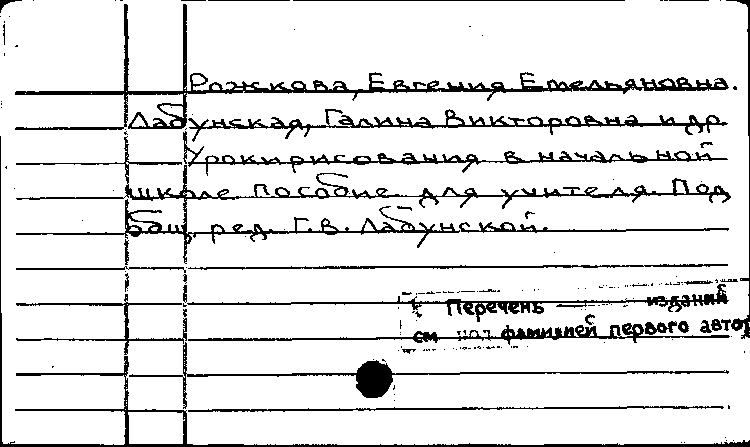 Рожкова, Евгения Емельяновна.
Лабунская, Галина Викторовна и др.
Уроки рисования в начальной
школе. Пособие для учителя. Под
общ. ред. Г. В. Лабунской.
Перечень изданий
см под фамилией первого автор